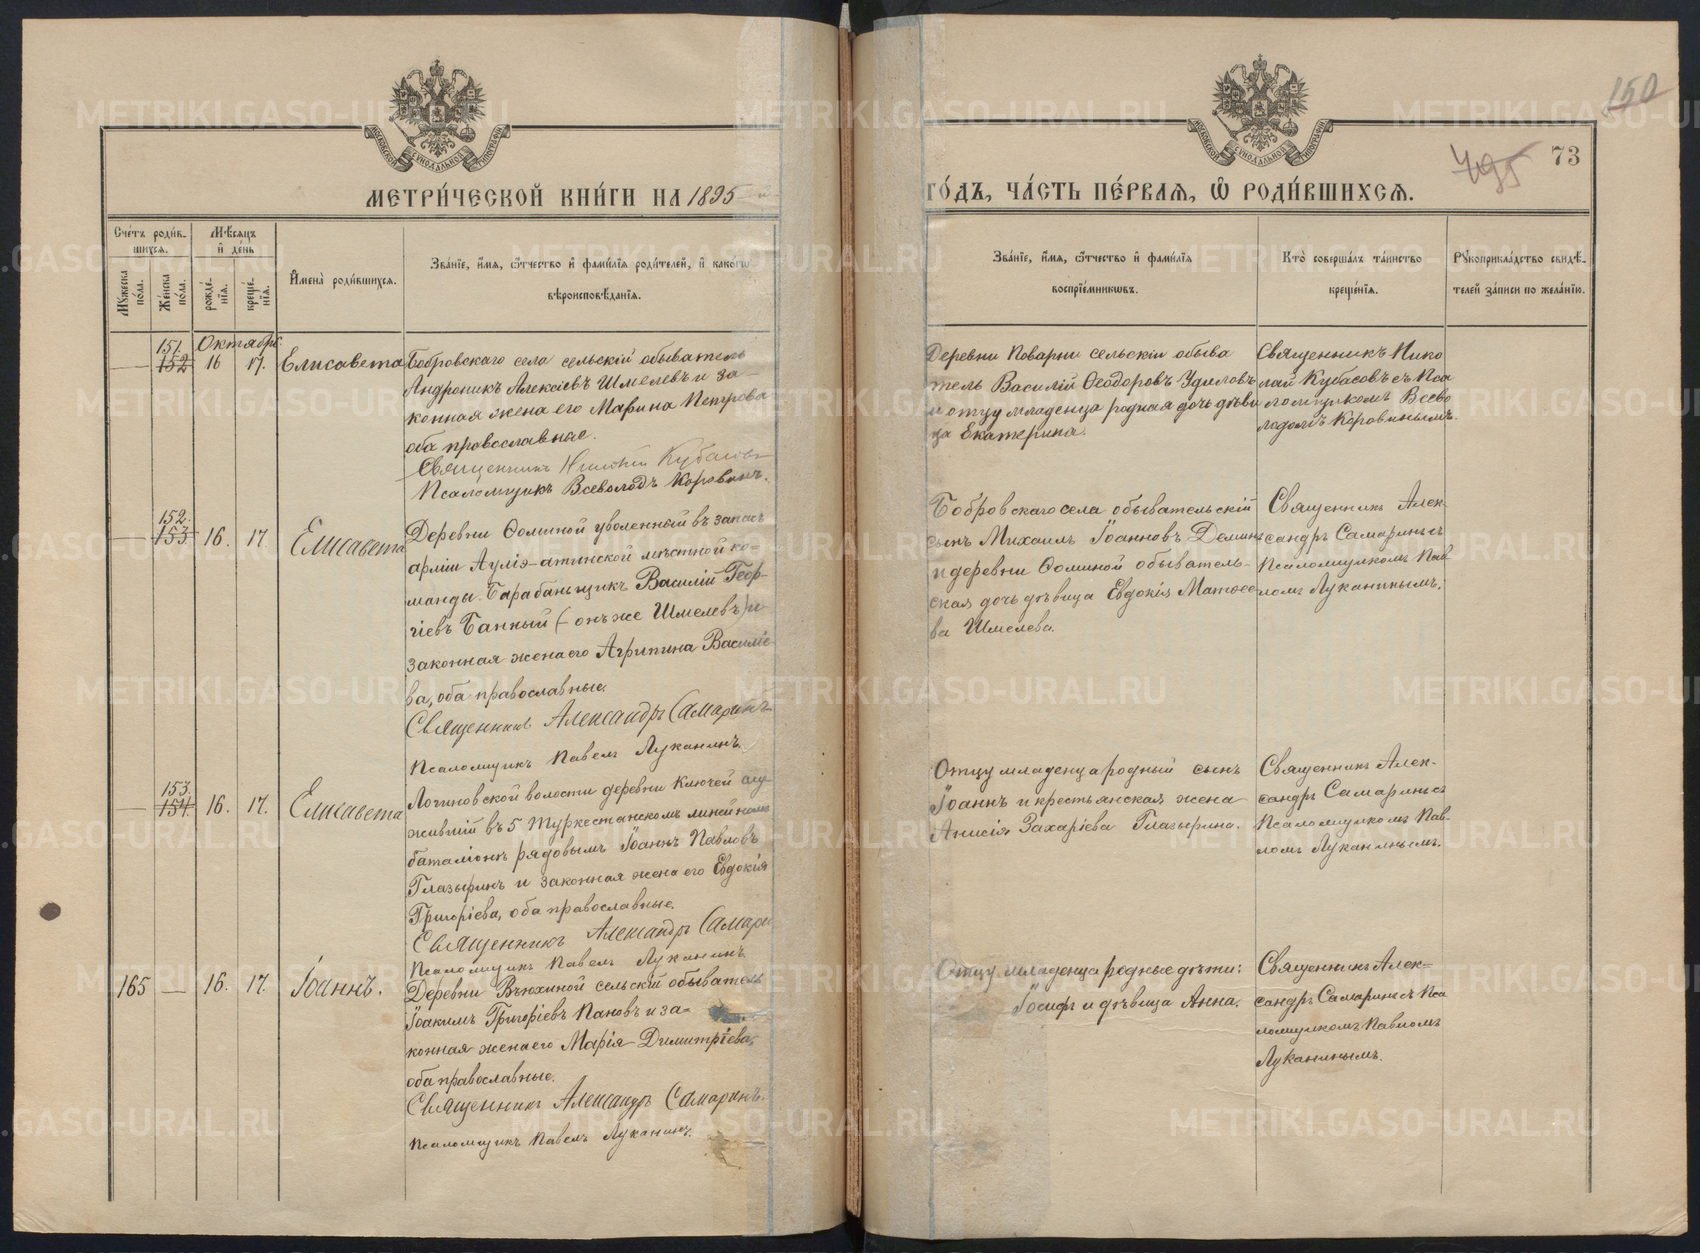 150
495
73
МЕТРИ́ЧЕСКОЙ КНИ́ГИ НА 1895 й
ГО́ДЪ, ЧА́СТЬ ПЕ́РВАЯ, Ѡ҆ РОДИ́ВШИХСЯ.
Сче́тъ роди́в-
шихся.
Мѣ́сяцъ
и҆ де́нь
Мꙋ́жеска
по́ла.
Же́нска
по́ла.
рожде́-
нїя.
креще́-
нїя.
И҆мена̀ роди́вшихся.
Зва́нїе, и҆́мя, ѻ҆́тчество и҆ фами́лїя роди́телей, и҆ како́гѡ
вѣроисповѣ́данїя.
Зва́нїе, и҆́мя, ѻ҆́тчество и҆ фами́лїя
воспрїе́мникѡвъ.
Кто̀ соверша́лъ та́инство
креще́нїя.
Рꙋкоприкла́дство свидѣ́-
телей за́писи по жела́нїю.
Октябрь.
151.
152
16
17.
Елисавета
Бобровскаго села сельскій обыватель
Андроникъ Алексіевъ Шмелевъ и за-
конная жена его Марина Петрова
оба православные.
Священникъ Николай Кубасовъ
Псаломщикъ Всеволодъ Коровинъ.
Деревни Поварни сельскій обыва
тель Василій Ѳеодоровъ Удиловъ
и отцу младенца родная дочь дѣви
ца Екатерина.
Священникъ Нико
лай Кубасовъ съ Пса
ломщикомъ Всево
лодомъ Коровинымъ.
152.
153
16.
17.
Елисавета
Деревни Ѳоминой уволенный въ запасъ
арміи Ауліэ-атинской мѣстной ко-
манды Барабанщикъ Василій Геор-
гіевъ Банный (- онъ же Шмелевъ) и
законная жена его Агрипина Василіе-
ва, оба православные.
Священникъ Александръ Самаринъ
Псаломщикъ Павелъ Луканинъ.
Бобровскаго села обывательскій
сынъ Михаилъ Іоанновъ Деминъ
и деревни Ѳоминой обыватель-
ская дочь дѣвица Евдокія Матѳее
ва Шмелева.
Священникъ Алек-
сандръ Самаринъ съ
Псаломщикомъ Пав
ломъ Луканинымъ.
153.
154.
16.
17.
Елисавета
Логиновской волости деревни Ключей слу-
жившій въ 5 Туркестанскомъ линейномъ
баталіонѣ рядовымъ Іоаннъ Павловъ
Глазыринъ и законная жена его Евдокія
Григоріева, оба православные.
Священникъ Александръ Самари
Псаломщикъ Павелъ Луканинъ
Отцу младенца родный сынъ
Іоаннъ и крестьянская жена
Анисія Захаріева Глазырина.
Священникъ Алек-
сандръ Самаринъ съ
Псаломщикомъ Пав-
ломъ Луканинымъ.
165
16.
17.
Іоаннъ.
Деревни Вьюхиной сельскій обыватель
Іоакимъ Григоріевъ Пановъ и за-
конная жена его Марія Димитріева,
оба православные.
Священникъ Александръ Самаринъ.
Псаломщикъ Павелъ Луканинъ.
Отцу младенца родные дѣти:
Іосифъ и дѣвица Анна.
Священникъ Алек-
сандръ Самаринъ съ Пса
ломщикомъ Павломъ
Луканинымъ.